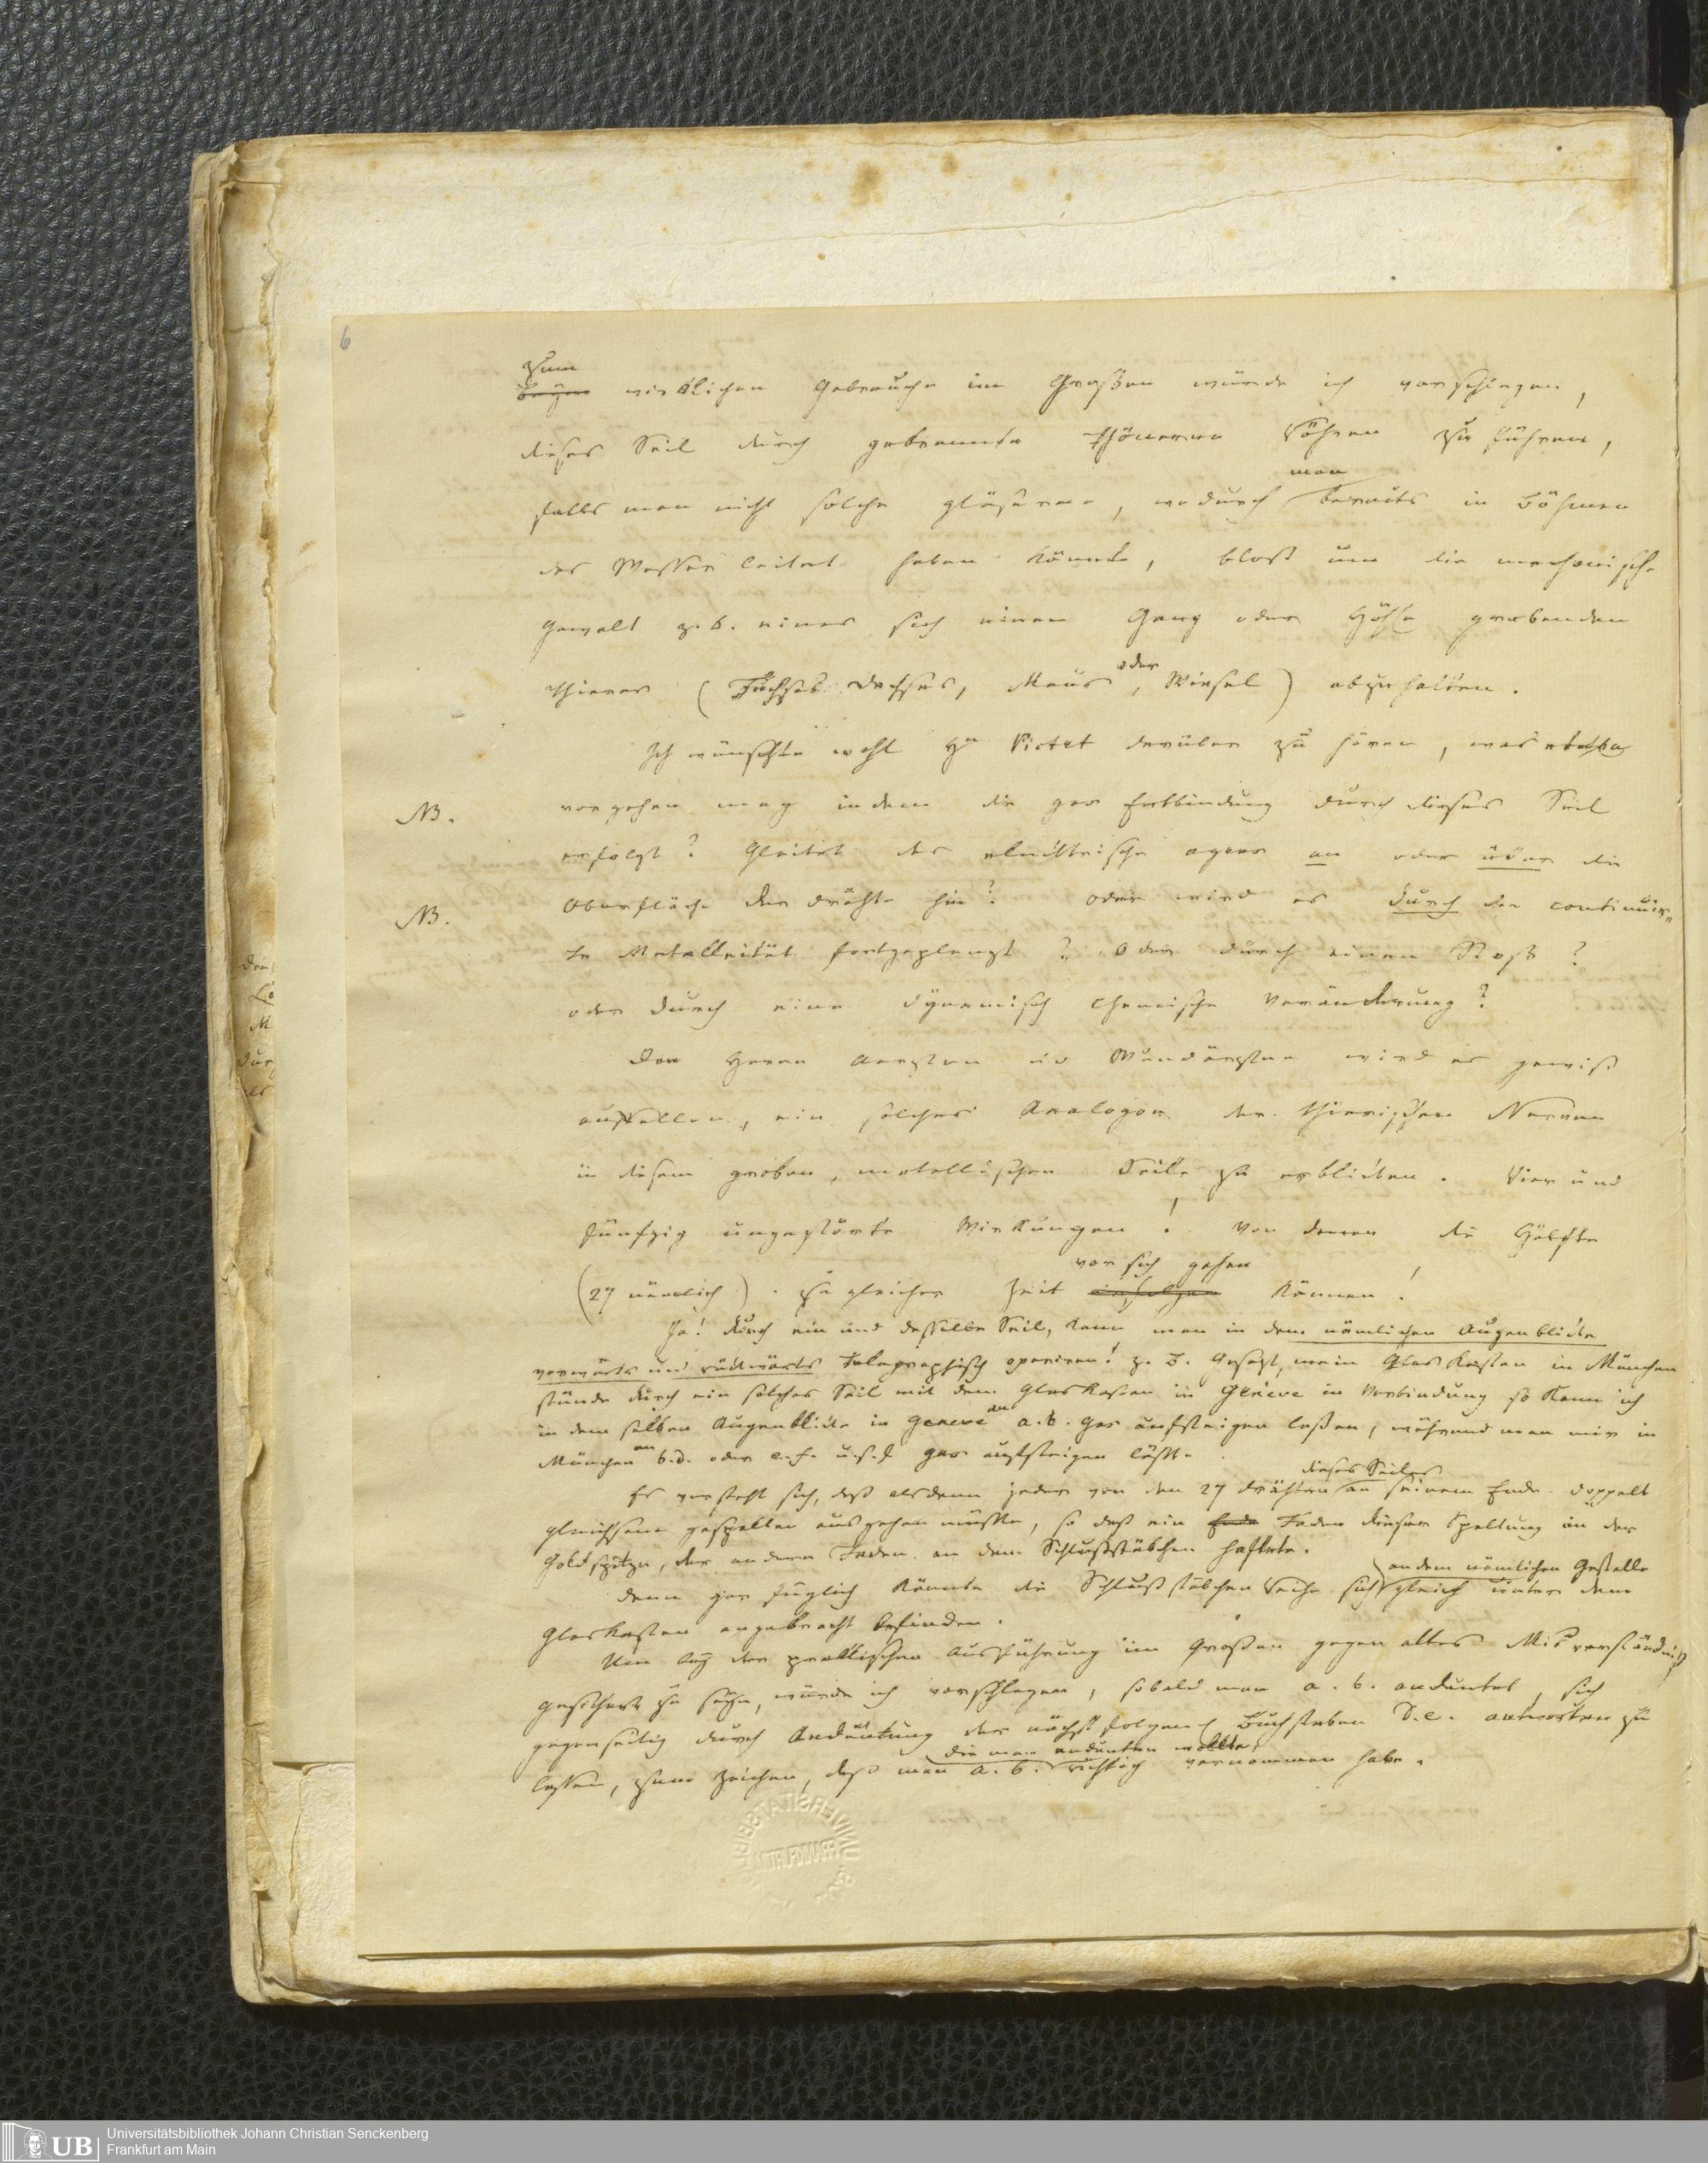 6
zum
beym wirklichen Gebrauche im Großen würde ich vorschlagen,
dieses Seil durch gebrannte thönerne Röhren zu führen,
man
falls man nicht solche gläserne, wodurch bereits in Böhmen
das Wasser leitet haben könnte, bloß um die mechanische
Gewalt z.b. eines sich einen Gang oder Höhle grabenden
oder
Thieres (Fuchses Dachses, Maus, Wiesel) abzuhalten.
Ich wünschte wohl Hn Pictet darüber zu hören, was etwa
NB.
vorgehen mag indem die gas Entbindung durch dieses Seil
erfolgt? Gleitet das elecktrische agens an oder über die
NB.
Oberfläche der Drähte hin? oder wird es durch die continuir„
te Metalleität fortgeplanzt? Oder durch einen Stoß?
oder durch eine dynamisch chemische Veränderung?
Den Herrn Aerzten und Wundärzten wird es gewiß
auffallen, ein solches Analogon der thierischen Nerven
in diesem groben, metallischen Seile zu erblicken. Vier und
fünfzig ungestörte Wirkungen! Von denen die Hälfte
vor sich gehen
(27 nämlich) zu gleicher Zeit erfolgen können!
Ja! durch ein und dasselbe Seil, kann man in dem nämlichen Augenblicke
vorwärts und rückwärts telegraphisch operiren! z. B. Gesezt, mein Glas Kasten in München
stünde durch ein solches Seil mit dem Glaskasten in Géneve in Verbindung so kann ich
an
in dem selben Augenblicke in Geneve a.b. Gas aufsteigen laßen, während man mir in
an
München b.d. oder e.f. u.s.f gas aufsteigen läßt.
dieses Seiles
Es versteht sich, daß alsdann jeder von den 27 Drähten an seinem Ende doppelt
gleichsam gespalten ausgehen müßte, so daß ein Ende Faden dieser Spaltung in der
Goldspitze, der andere Faden an dem Schlußstäbchen haftete.
an dem nämlichen Gestelle
Denn gar füglich könnte die Schlußstäbchen Reihe sich gleich unter dem
Glaskasten angebracht befinden.
Um bey der praktischen Ausführung im Großen gegen alles Misverständniß
gesichert zu seyn, würde ich vorschlagen, sobald man a. b. andeutet, sich
gegenseitig durch Andeutung der nächst folgend Buchstaben b.c. antworten zu
die man andeuten wollte,
lassen, zum Zeichen, daß man a. b. richtig vernommen habe.
UB
Universitätsbibliothek Johann Christian Senckenberg
Frankfurt am Main